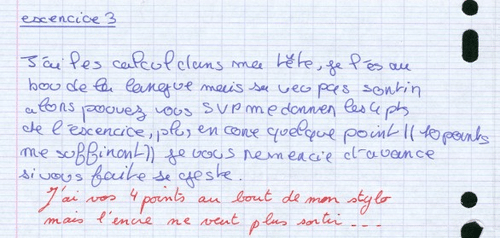 exencice 3
J'ai les calcul dans ma tête, je l'es au
bou de la langue mais sa veu pas sontin
alons pouvez vous SVP me donnen les 4 pts
de l'exencice, plus en cone quelque point (( 10 points
me suffinont)) je vous nemencie d'avance
si vous faite se geste.
J'ai vos 4 points au bout de mon stylo
mais l'encre ne veut plus sortir ...